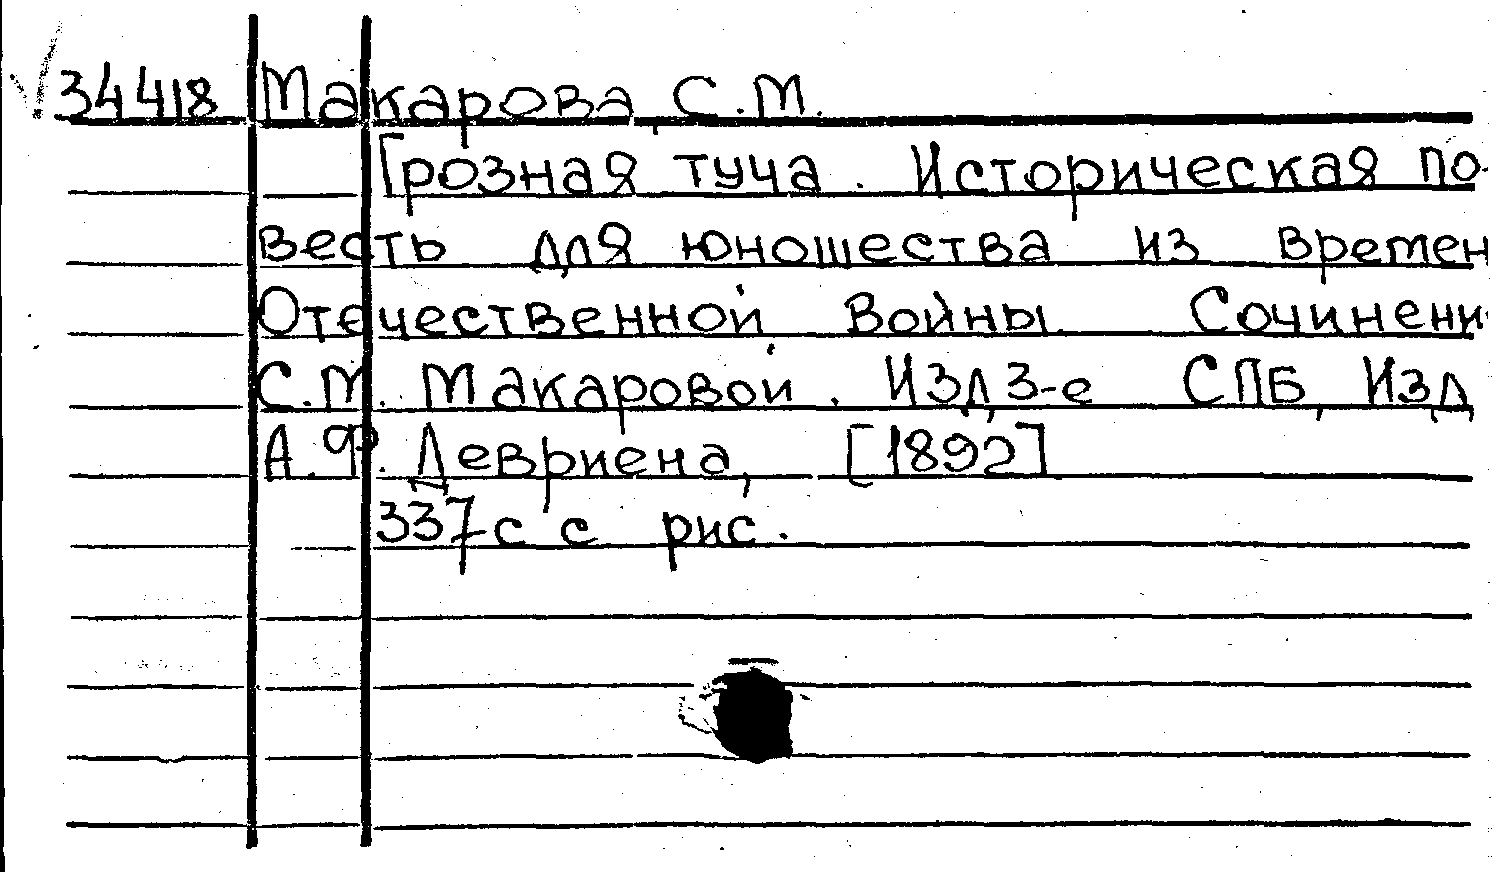 34418 Макарова, С.М.
Грозная туча. Историческая по-
весть для юношества из времен
Отечественной Войны. Сочинени
С.М. Макаровой. Изд. 3-е СПБ, Изд.
А.Ф. Девриена, [1892]
337 с с рис.